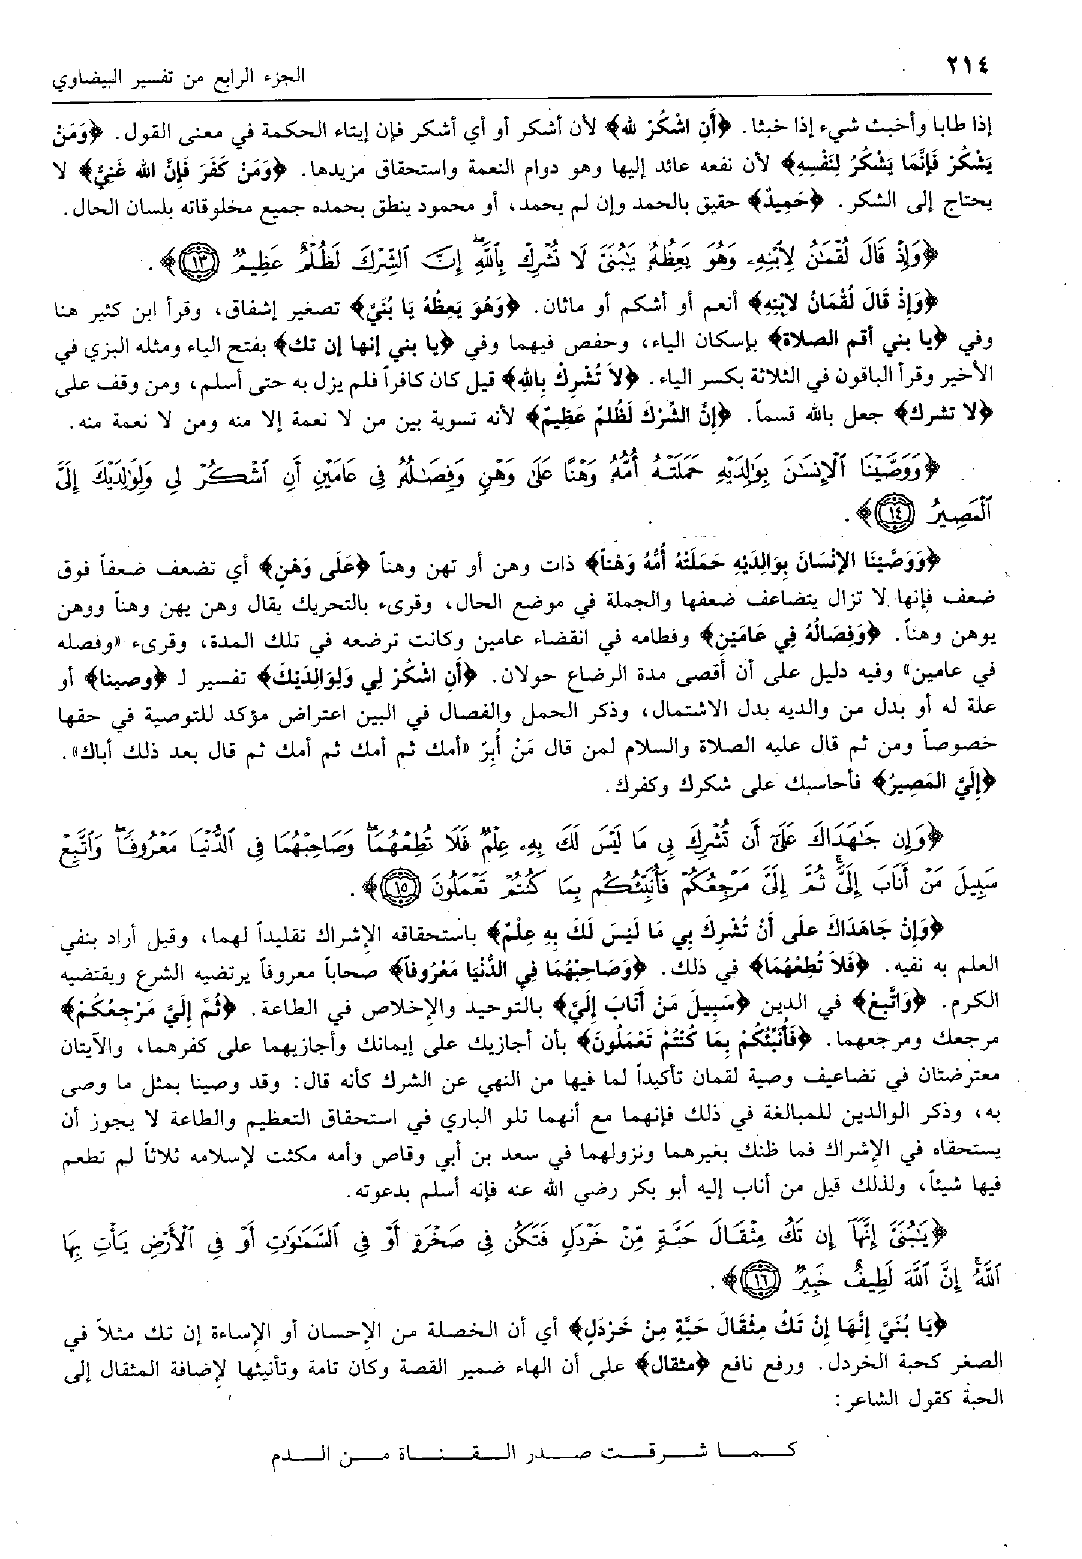 ٢١٤
الجزء الرابع من تفسير البيضاوي
إذا طابا وأخبث شيء إذا خبثا. ﴿أَنِ اشْكُرْ لله﴾ لأن أشكر أو أي أشكر فإن إيتاء الحكمة في معنى القول. ﴿وَمَنْ
يَشْكُرْ فَإِنَّمَا يَشْكُرُ لِنَفْسِهِ﴾ لأن نفعه عائد إليها وهو دوام النعمة واستحقاق مزيدها. ﴿وَمَنْ كَفَرَ فَإِنَّ الله غَنِيٌّ﴾ لا
يحتاج إلى الشكر. ﴿حَمِيدٌ﴾ حقيق بالحمد وإن لم يحمد، أو محمود ينطق بحمده جميع مخلوقاته بلسان الحال.
﴿وَإِذْ قَالَ لُقْمَٰنُ لِٱبْنِهِۦ وَهُوَ يَعِظُهُۥ يَٰبُنَىَّ لَا تُشْرِكْ بِٱللَّهِ إِنَّ ٱلشِّرْكَ لَظُلْمٌ عَظِيمٌ ١٣﴾.
﴿وَإِذْ قَالَ لُقْمَانُ لابْنِهِ﴾ أنعم أو أشكم أو ماثان. ﴿وَهُوَ يَعِظُهُ يَا بُنَيَّ﴾ تصغير إشفاق، وقرأ ابن كثير هنا
وفي ﴿يا بني أقم الصلاة﴾ بإسكان الياء، وحفص فيهما وفي ﴿يا بني إنها إن تك﴾ بفتح الياء ومثله البزي في
الأخير وقرأ الباقون في الثلاثة بكسر الياء. ﴿لاَ تُشْرِكْ بِالله﴾ قيل كان كافراً فلم يزل به حتى أسلم، ومن وقف على
﴿لا تشرك﴾ جعل بالله قسماً. ﴿إِنَّ الشِّرْكَ لَظُلْمٌ عَظِيمٌ﴾ لأنه تسوية بين من لا نعمة إلا منه ومن لا نعمة منه.
﴿وَوَصَّيْنَا ٱلْإِنسَٰنَ بِوَٰلِدَيْهِ حَمَلَتْهُ أُمُّهُۥ وَهْنًا عَلَىٰ وَهْنٍ وَفِصَٰلُهُۥ فِى عَامَيْنِ أَنِ ٱشْكُرْ لِى وَلِوَٰلِدَيْكَ إِلَىَّ
ٱلْمَصِيرُ ١٤﴾.
﴿وَوَصَّيْنَا الإِنْسَانَ بِوَالِدَيْهِ حَمَلَتْهُ أُمُّهُ وَهْناً﴾ ذات وهن أو تهن وهناً ﴿عَلَى وَهْنٍ﴾ أي تضعف ضعفاً فوق
ضعف فإنها لا تزال يتضاعف ضعفها والجملة في موضع الحال، وقرىء بالتحريك يقال وهن يهن وهناً ووهن
يوهن وهناً. ﴿وَفِصَالُهُ فِي عَامَيْنِ﴾ وفطامه في انقضاء عامين وكانت ترضعه في تلك المدة، وقرىء «وفصله
في عامين» وفيه دليل على أن أقصى مدة الرضاع حولان. ﴿أَنِ اشْكُرْ لِي وَلِوَالِدَيْكَ﴾ تفسير لـ ﴿وصينا﴾ أو
علة له أو بدل من والديه بدل الاشتمال، وذكر الحمل والفصال في البين اعتراض مؤكد للتوصية في حقها
خصوصاً ومن ثم قال عليه الصلاة والسلام لمن قال مَنْ أَبِرّ «أمك ثم أمك ثم أمك ثم قال بعد ذلك أباك».
﴿إِلَيَّ المَصِيرُ﴾ فأحاسبك على شكرك وكفرك.
﴿وَإِن جَٰهَدَاكَ عَلَىٰٓ أَن تُشْرِكَ بِى مَا لَيْسَ لَكَ بِهِۦ عِلْمٌ فَلَا تُطِعْهُمَا وَصَاحِبْهُمَا فِى ٱلدُّنْيَا مَعْرُوفًا وَٱتَّبِعْ
سَبِيلَ مَنْ أَنَابَ إِلَىَّ ثُمَّ إِلَىَّ مَرْجِعُكُمْ فَأُنَبِّئُكُم بِمَا كُنتُمْ تَعْمَلُونَ ١٥﴾.
﴿وَإِنْ جَاهَدَاكَ عَلى أَنْ تُشْرِكَ بِي مَا لَيْسَ لَكَ بِهِ عِلْمٌ﴾ باستحقاقه الإشراك تقليداً لهما، وقيل أراد بنفي
العلم به نفيه. ﴿فَلاَ تُطِعْهُمَا﴾ في ذلك. ﴿وَصَاحِبْهُمَا فِي الدُّنْيَا مَعْرُوفاً﴾ صحاباً معروفاً يرتضيه الشرع ويقتضيه
الكرم. ﴿وَاتَّبِعْ﴾ في الدين ﴿سَبِيلَ مَنْ أَنَابَ إِلَيَّ﴾ بالتوحيد والإخلاص في الطاعة. ﴿ثُمَّ إِلَيَّ مَرْجِعُكُمْ﴾
مرجعك ومرجعهما. ﴿فَأُنَبِّئُكُمْ بِمَا كُنْتُمْ تَعْمَلُونَ﴾ بأن أجازيك على إيمانك وأجازيهما على كفرهما، والآيتان
معترضتان في تضاعيف وصية لقمان تأكيداً لما فيها من النهي عن الشرك كأنه قال: وقد وصينا بمثل ما وصى
به، وذكر الوالدين للمبالغة في ذلك فإنهما مع أنهما تلو الباري في استحقاق التعظيم والطاعة لا يجوز أن
يستحقاه في الإشراك فما ظنك بغيرهما ونزولهما في سعد بن أبي وقاص وأمه مكثت لإسلامه ثلاثاً لم تطعم
فيها شيئاً، ولذلك قيل من أناب إليه أبو بكر رضي الله عنه فإنه أسلم بدعوته.
﴿يَٰبُنَىَّ إِنَّهَآ إِن تَكُ مِثْقَالَ حَبَّةٍ مِّنْ خَرْدَلٍ فَتَكُن فِى صَخْرَةٍ أَوْ فِى ٱلسَّمَٰوَٰتِ أَوْ فِى ٱلْأَرْضِ يَأْتِ بِهَا
ٱللَّهُ إِنَّ ٱللَّهَ لَطِيفٌ خَبِيرٌ ١٦﴾.
﴿يَا بُنَيَّ إِنَّهَا إِنْ تَكُ مِثْقَالَ حَبَّةٍ مِنْ خَرْدَلٍ﴾ أي أن الخصلة من الإحسان أو الإساءة إن تك مثلاً في
الصغر كحبة الخردل. ورفع نافع ﴿مثقال﴾ على أن الهاء ضمير القصة وكان تامة وتأنيثها لإضافة المثقال إلى
الحبة كقول الشاعر:
كـمـا شـرقـت صـدر الـقـنـاة مـن الـدم